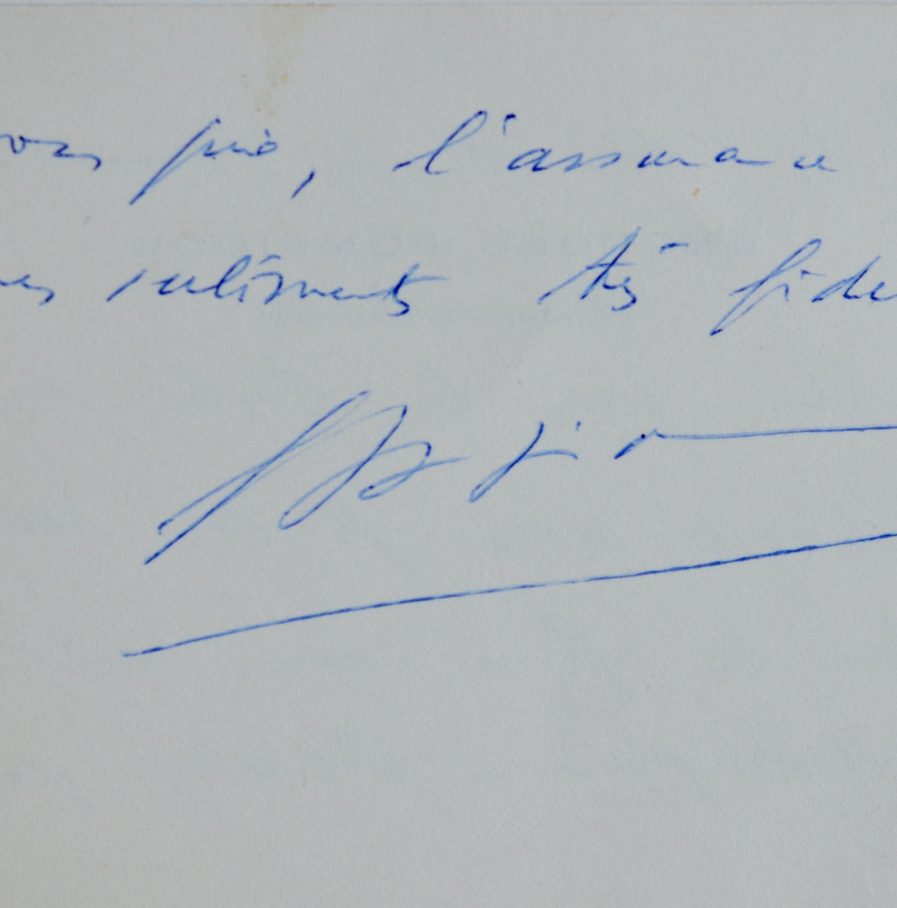 vous prie, l'assurance
mes sentiments très fidè